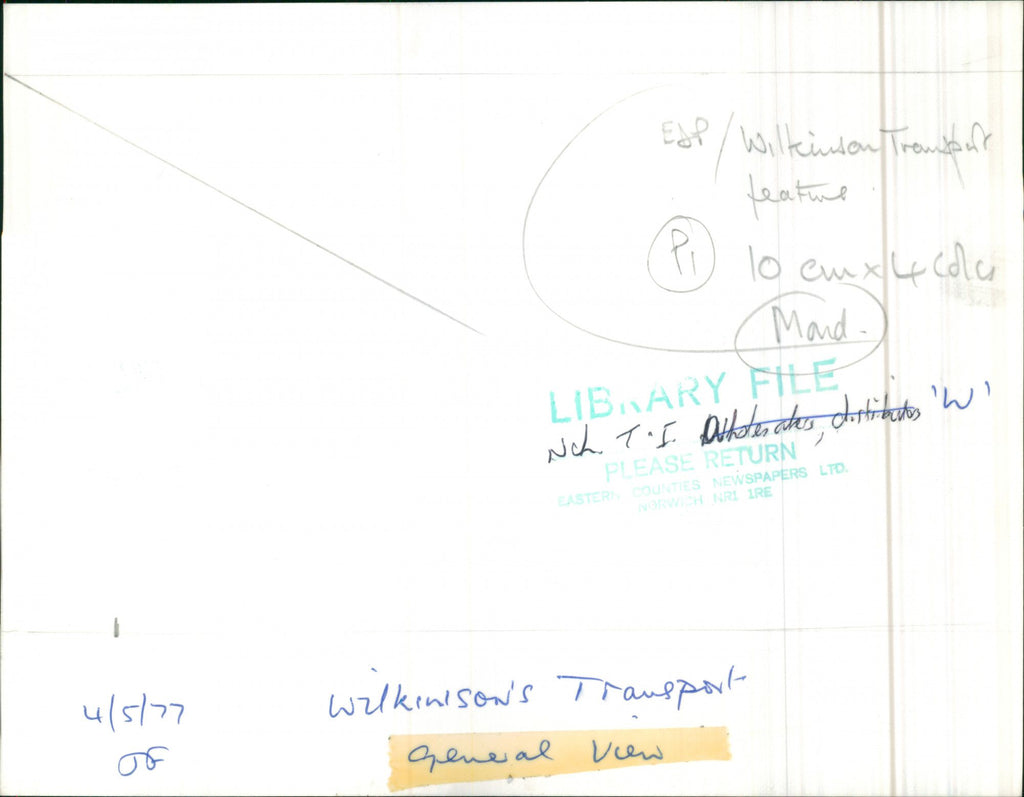 EDP / Wilkinson Transport
feature
P1
10 cm x 4 cols
Mond.
LIBRARY FILE
Nch. T.I. Wholesalers, distributors 'W'
PLEASE RETURN
EASTERN COUNTIES NEWSPAPERS LTD.
NORWICH NR1 1RE
4/5/77
Wilkinson's Transport
General View